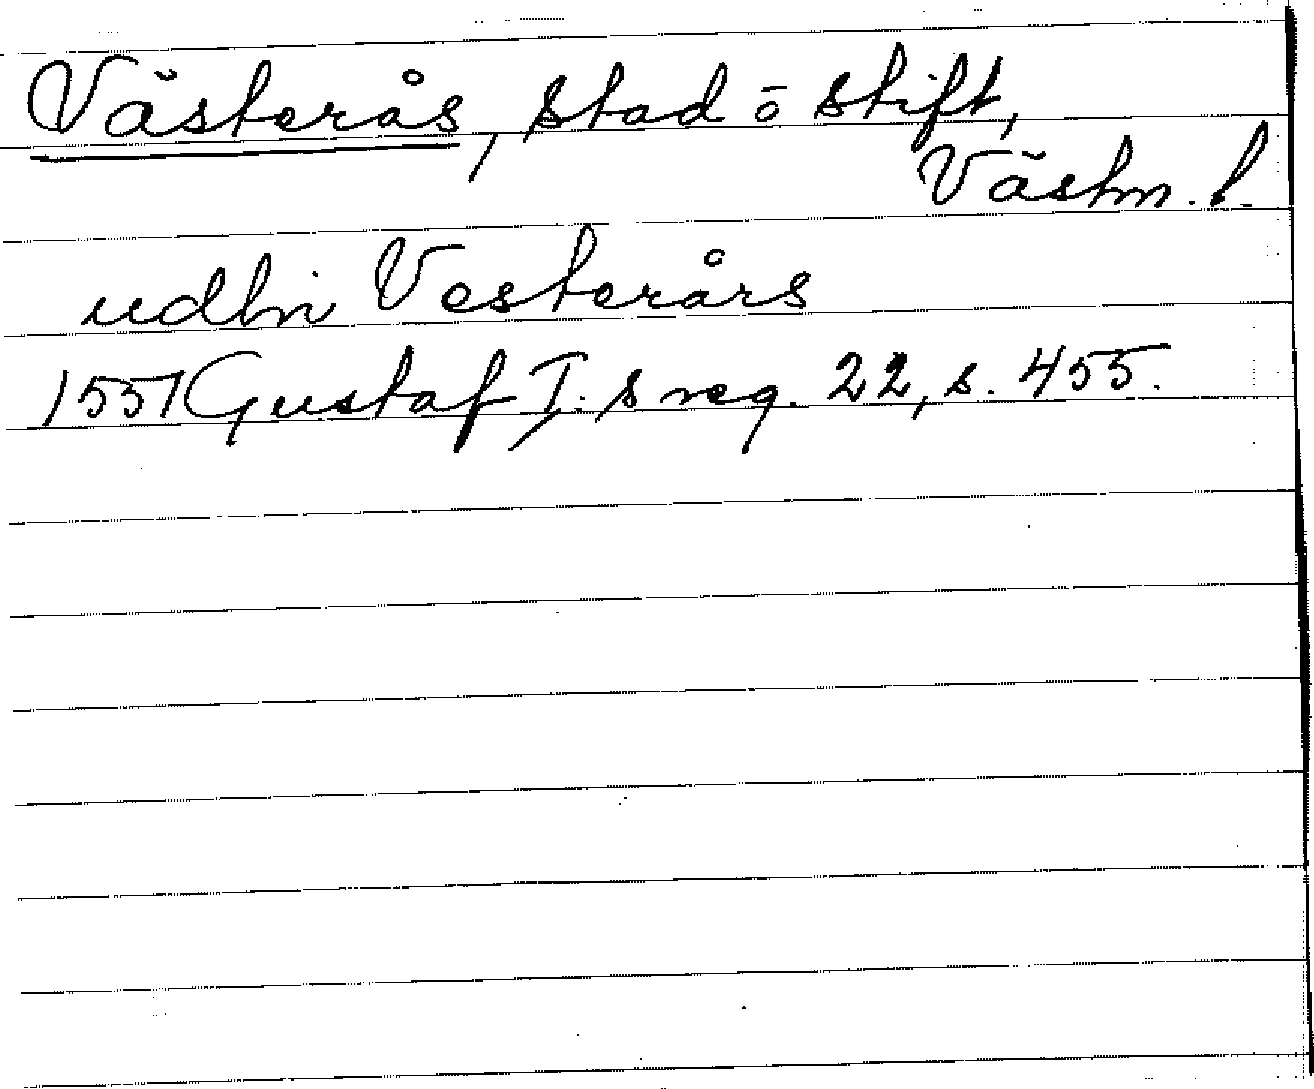 Västerås, stad o stift,
Västm. l.
udhi Vesterårs
1551 Gustaf I:s reg. 22, s. 455.